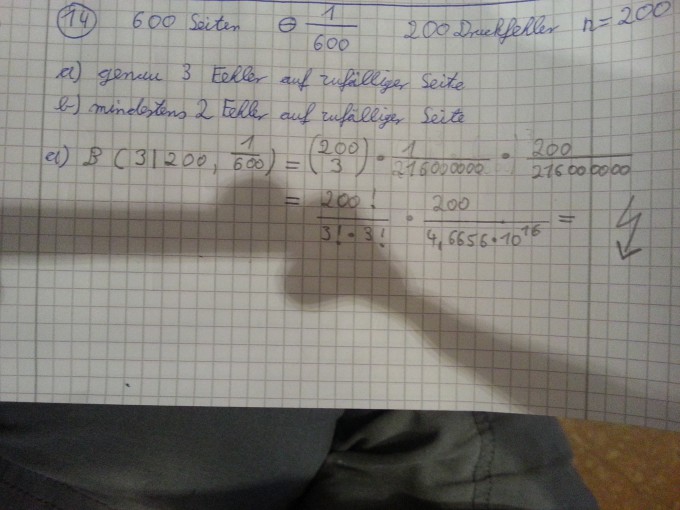 14 600 Seiten θ 1/600 200 Druckfehler n = 200
a) genau 3 Fehler auf zufälliger Seite
b) mindestens 2 Fehler auf zufälliger Seite
a) B (3 | 200, 1/600) = (200 3) · 1/216000000 · 200/216000000
= 200!/3! · 3! · 200/4,6656 · 10^16 =